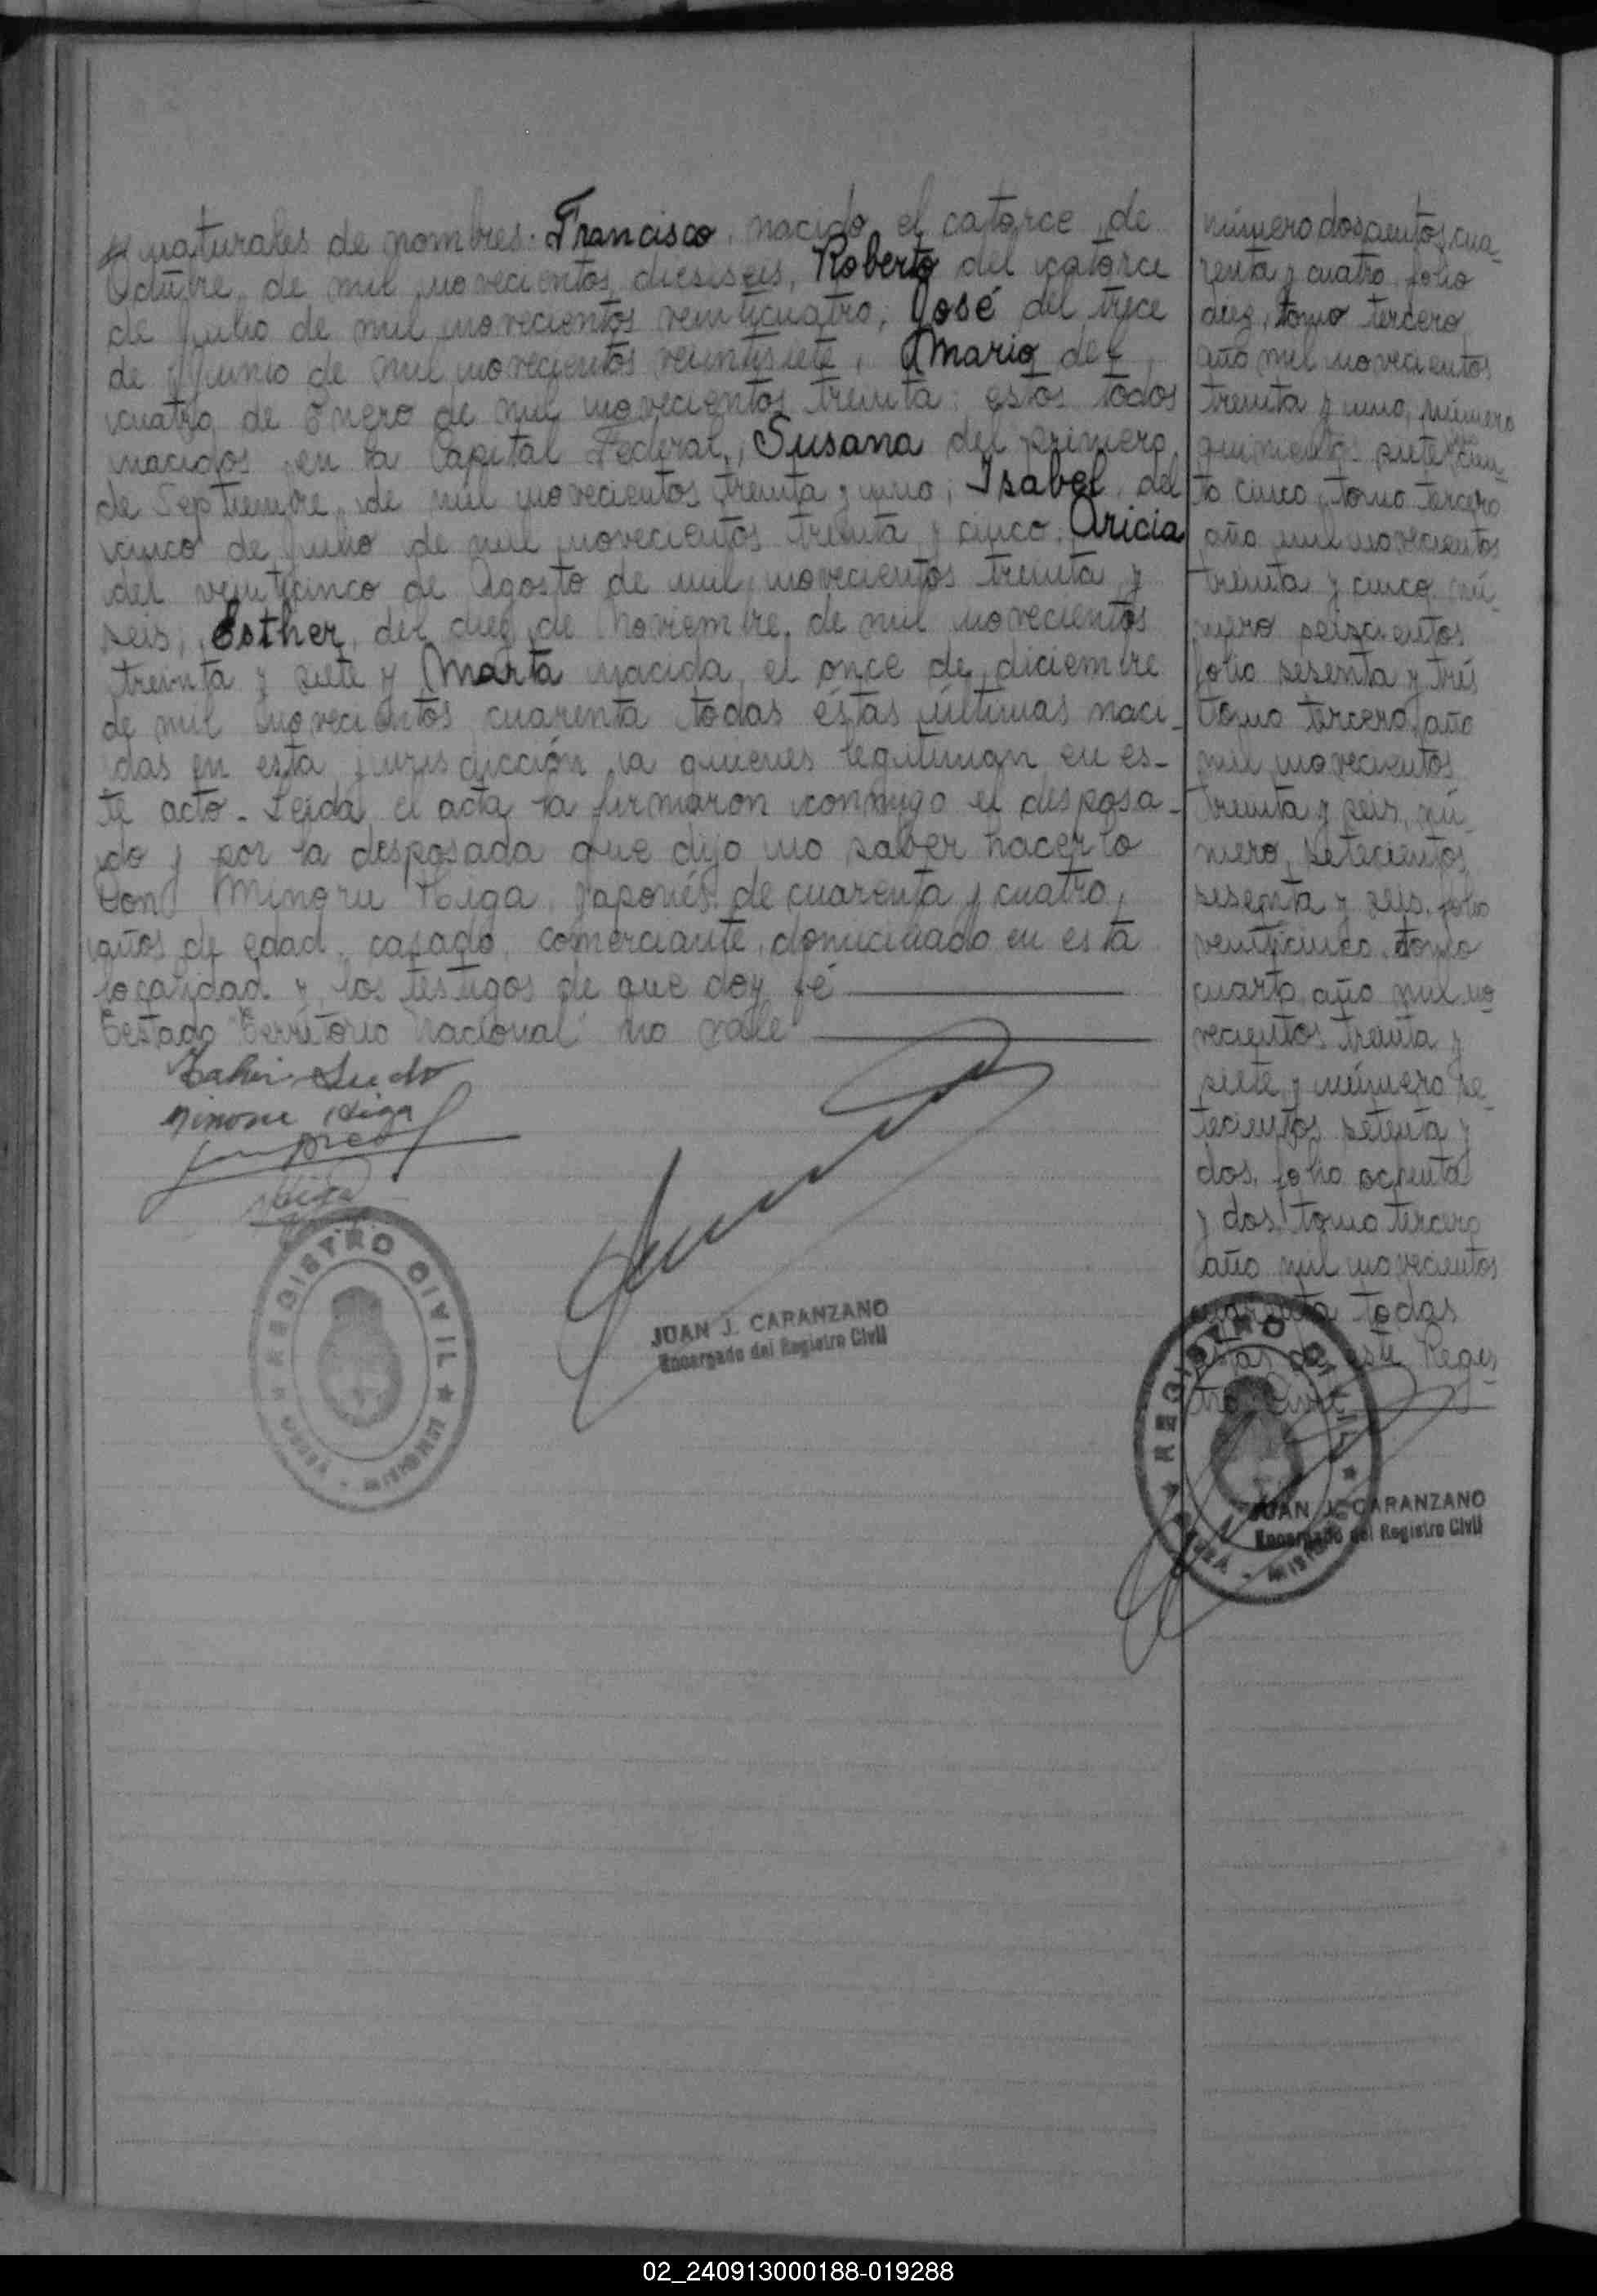 naturales de nombres: Francisco, nacido el catorce de
Octubre de mil novecientos dieseseis, Roberto del catorce
de Julio de mil novecientos veinticuatro; José del trece
de Junio de mil novecientos veintisiete, Mario del
cuatro de Enero de mil novecientos treinta; estos todos
nacidos en la Capital Federal, Susana del primero
de Septiembre de mil novecientos treinta y uno; Isabel, del
cinco de Julio de mil novecientos treinta y cinco; Aricia
del veinticinco de Agosto de mil novecientos treinta y
seis, Esther, del diez de Noviembre de mil novecientos
treinta y siete y Marta nacida el once de diciembre
de mil novecientos cuarenta todas éstas últimas naci-
das en esta jurisdicción a quienes legitiman en es-
te acto. Leida el acta la firmaron conmigo el desposa-
do y por la desposada que dijo no saber hacerlo
Don Minoru Higa, japonés de cuarenta y cuatro
años de edad, casado, comerciante, domiciliado en esta
localidad y los testigos de que doy fé
Testado "Territorio Nacional" no vale
Minoru Higa
Higa
REGISTRO CIVIL
MISIONES
JUAN J. CARANZANO
Encargado del Registro Civil
número doscientos cua-
renta y cuatro, folio
diez, tomo tercero
año mil novecientos
treinta y uno, número
quinientos siete
to cinco, tomo tercero
año mil novecientos
treinta y cinco, nú-
mero seiscientos
folio sesenta y trés
tomo tercero, año
mil novecientos
treinta y seis, nú-
mero, setecientos
sesenta y seis, folio
veinticinco, tomo
cuarto, año mil no-
vecientos treinta y
siete y número se-
tecientos setenta y
dos, folio ochenta
y dos, tomo tercero
año mil novecientos
cuarenta todas
estas de este Regis-
tro Civil
REGISTRO CIVIL
MISIONES
JUAN J. CARANZANO
Encargado del Registro Civil
02_240913000188-019288